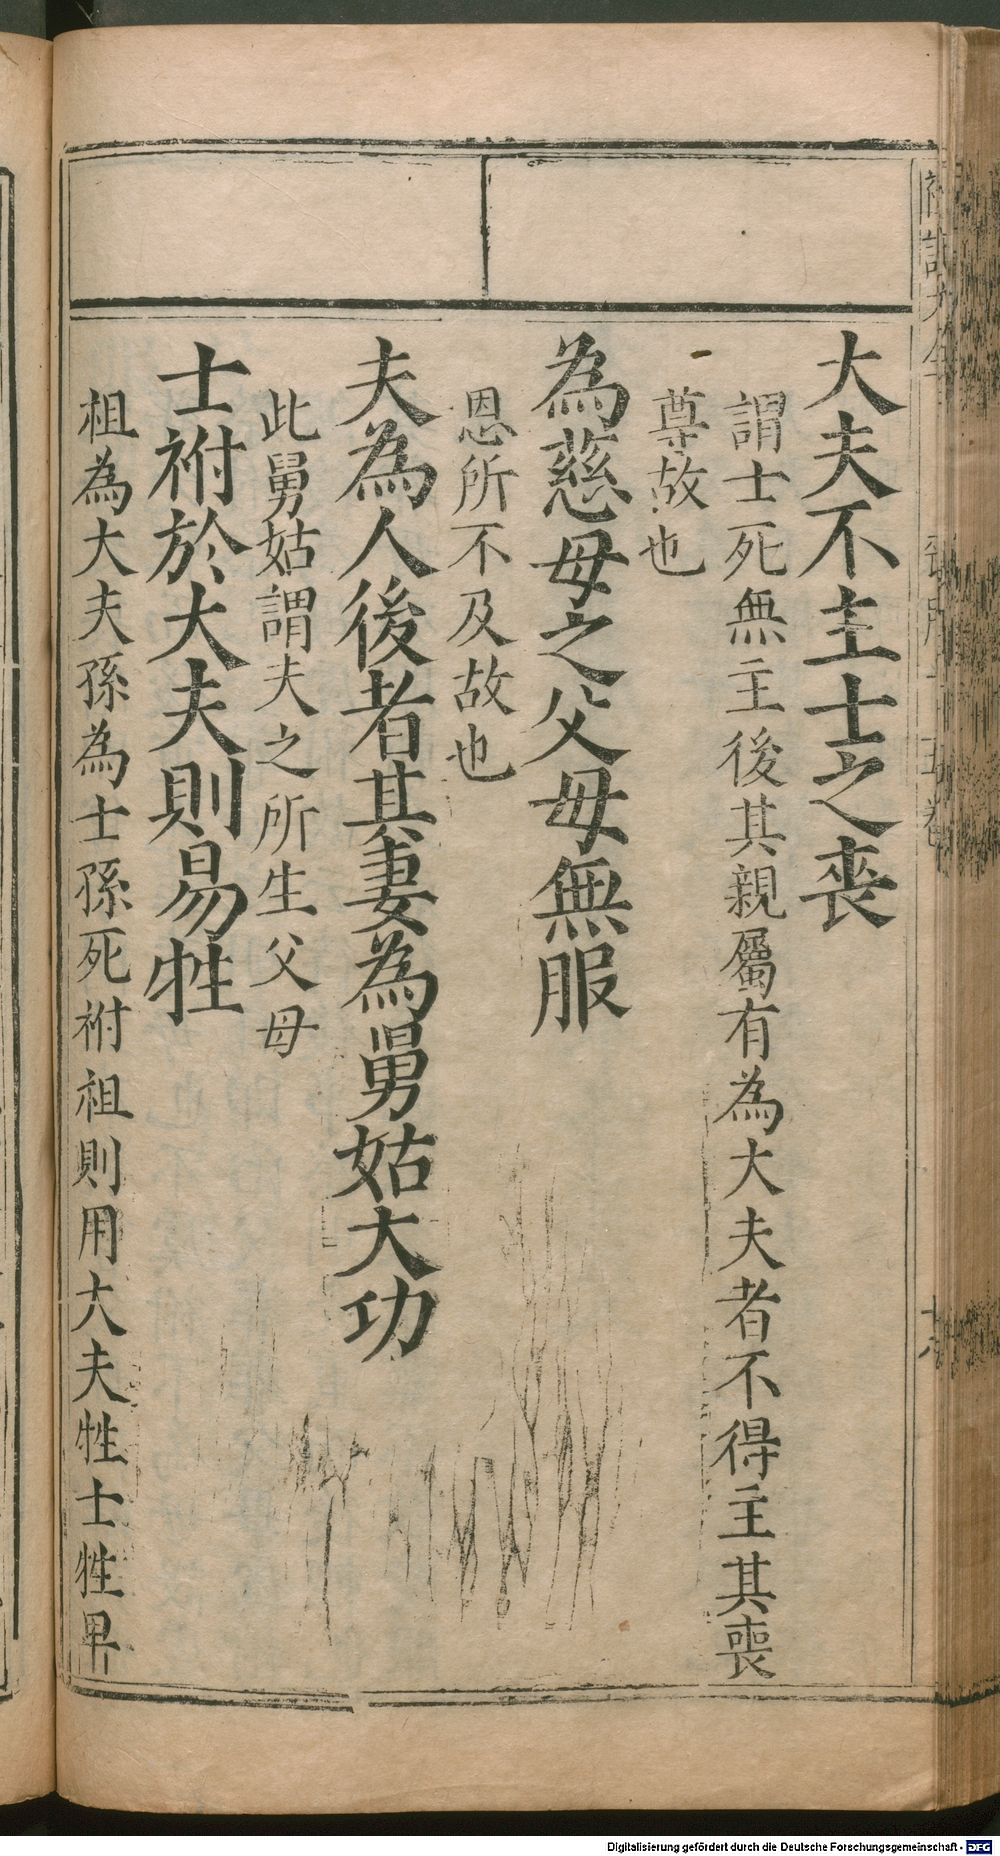 大夫不主士之喪
謂士死無主後其親屬有為大夫者不得主其喪
尊故也
為慈母之父母無服
恩所不及故也
夫為人後者其妻為舅姑大功
此舅姑謂夫之所生父母
士祔於大夫則易牲
祖為大夫孫為士孫死祔祖則用大夫牲士牲卑
Digitalisierung gefördert durch die Deutsche Forschungsgemeinschaft - DFG